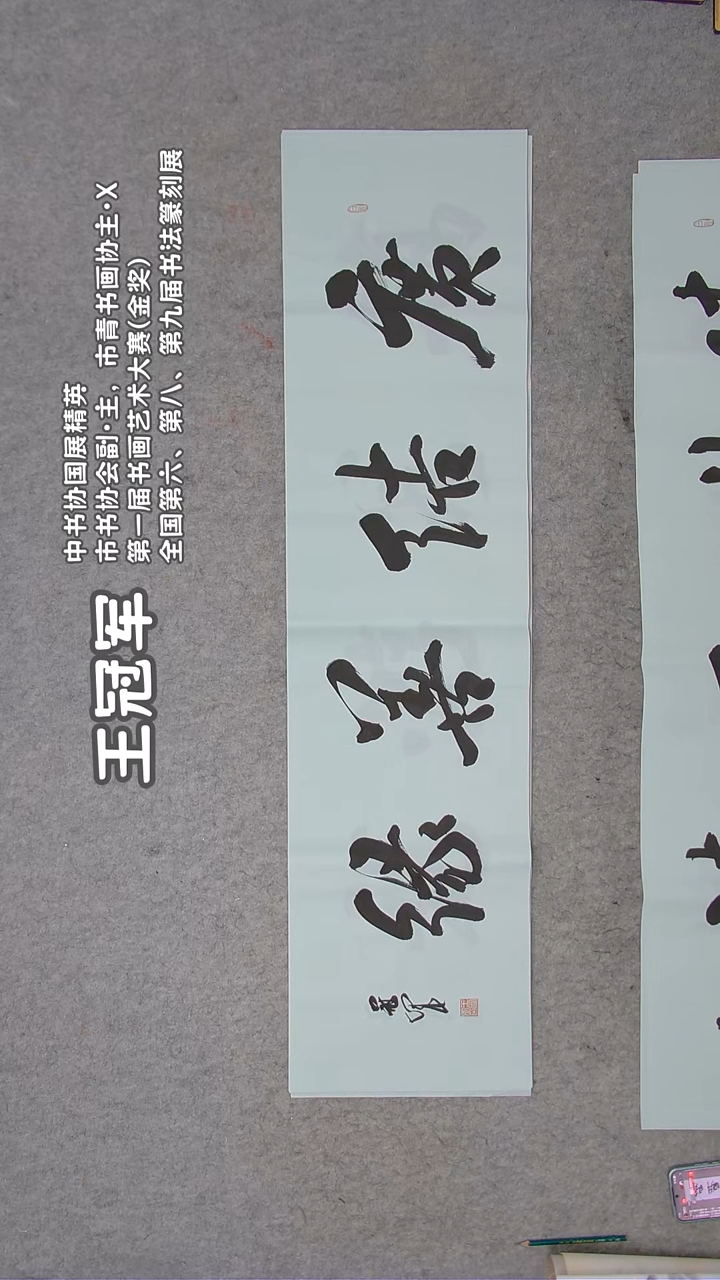 中书协国展精英
市书协会副·主，市青书画协主·X
第一届书画艺术大赛(金奖)
全国第六、第八、第九届书法篆刻展
王冠军
廣結善緣
冠軍